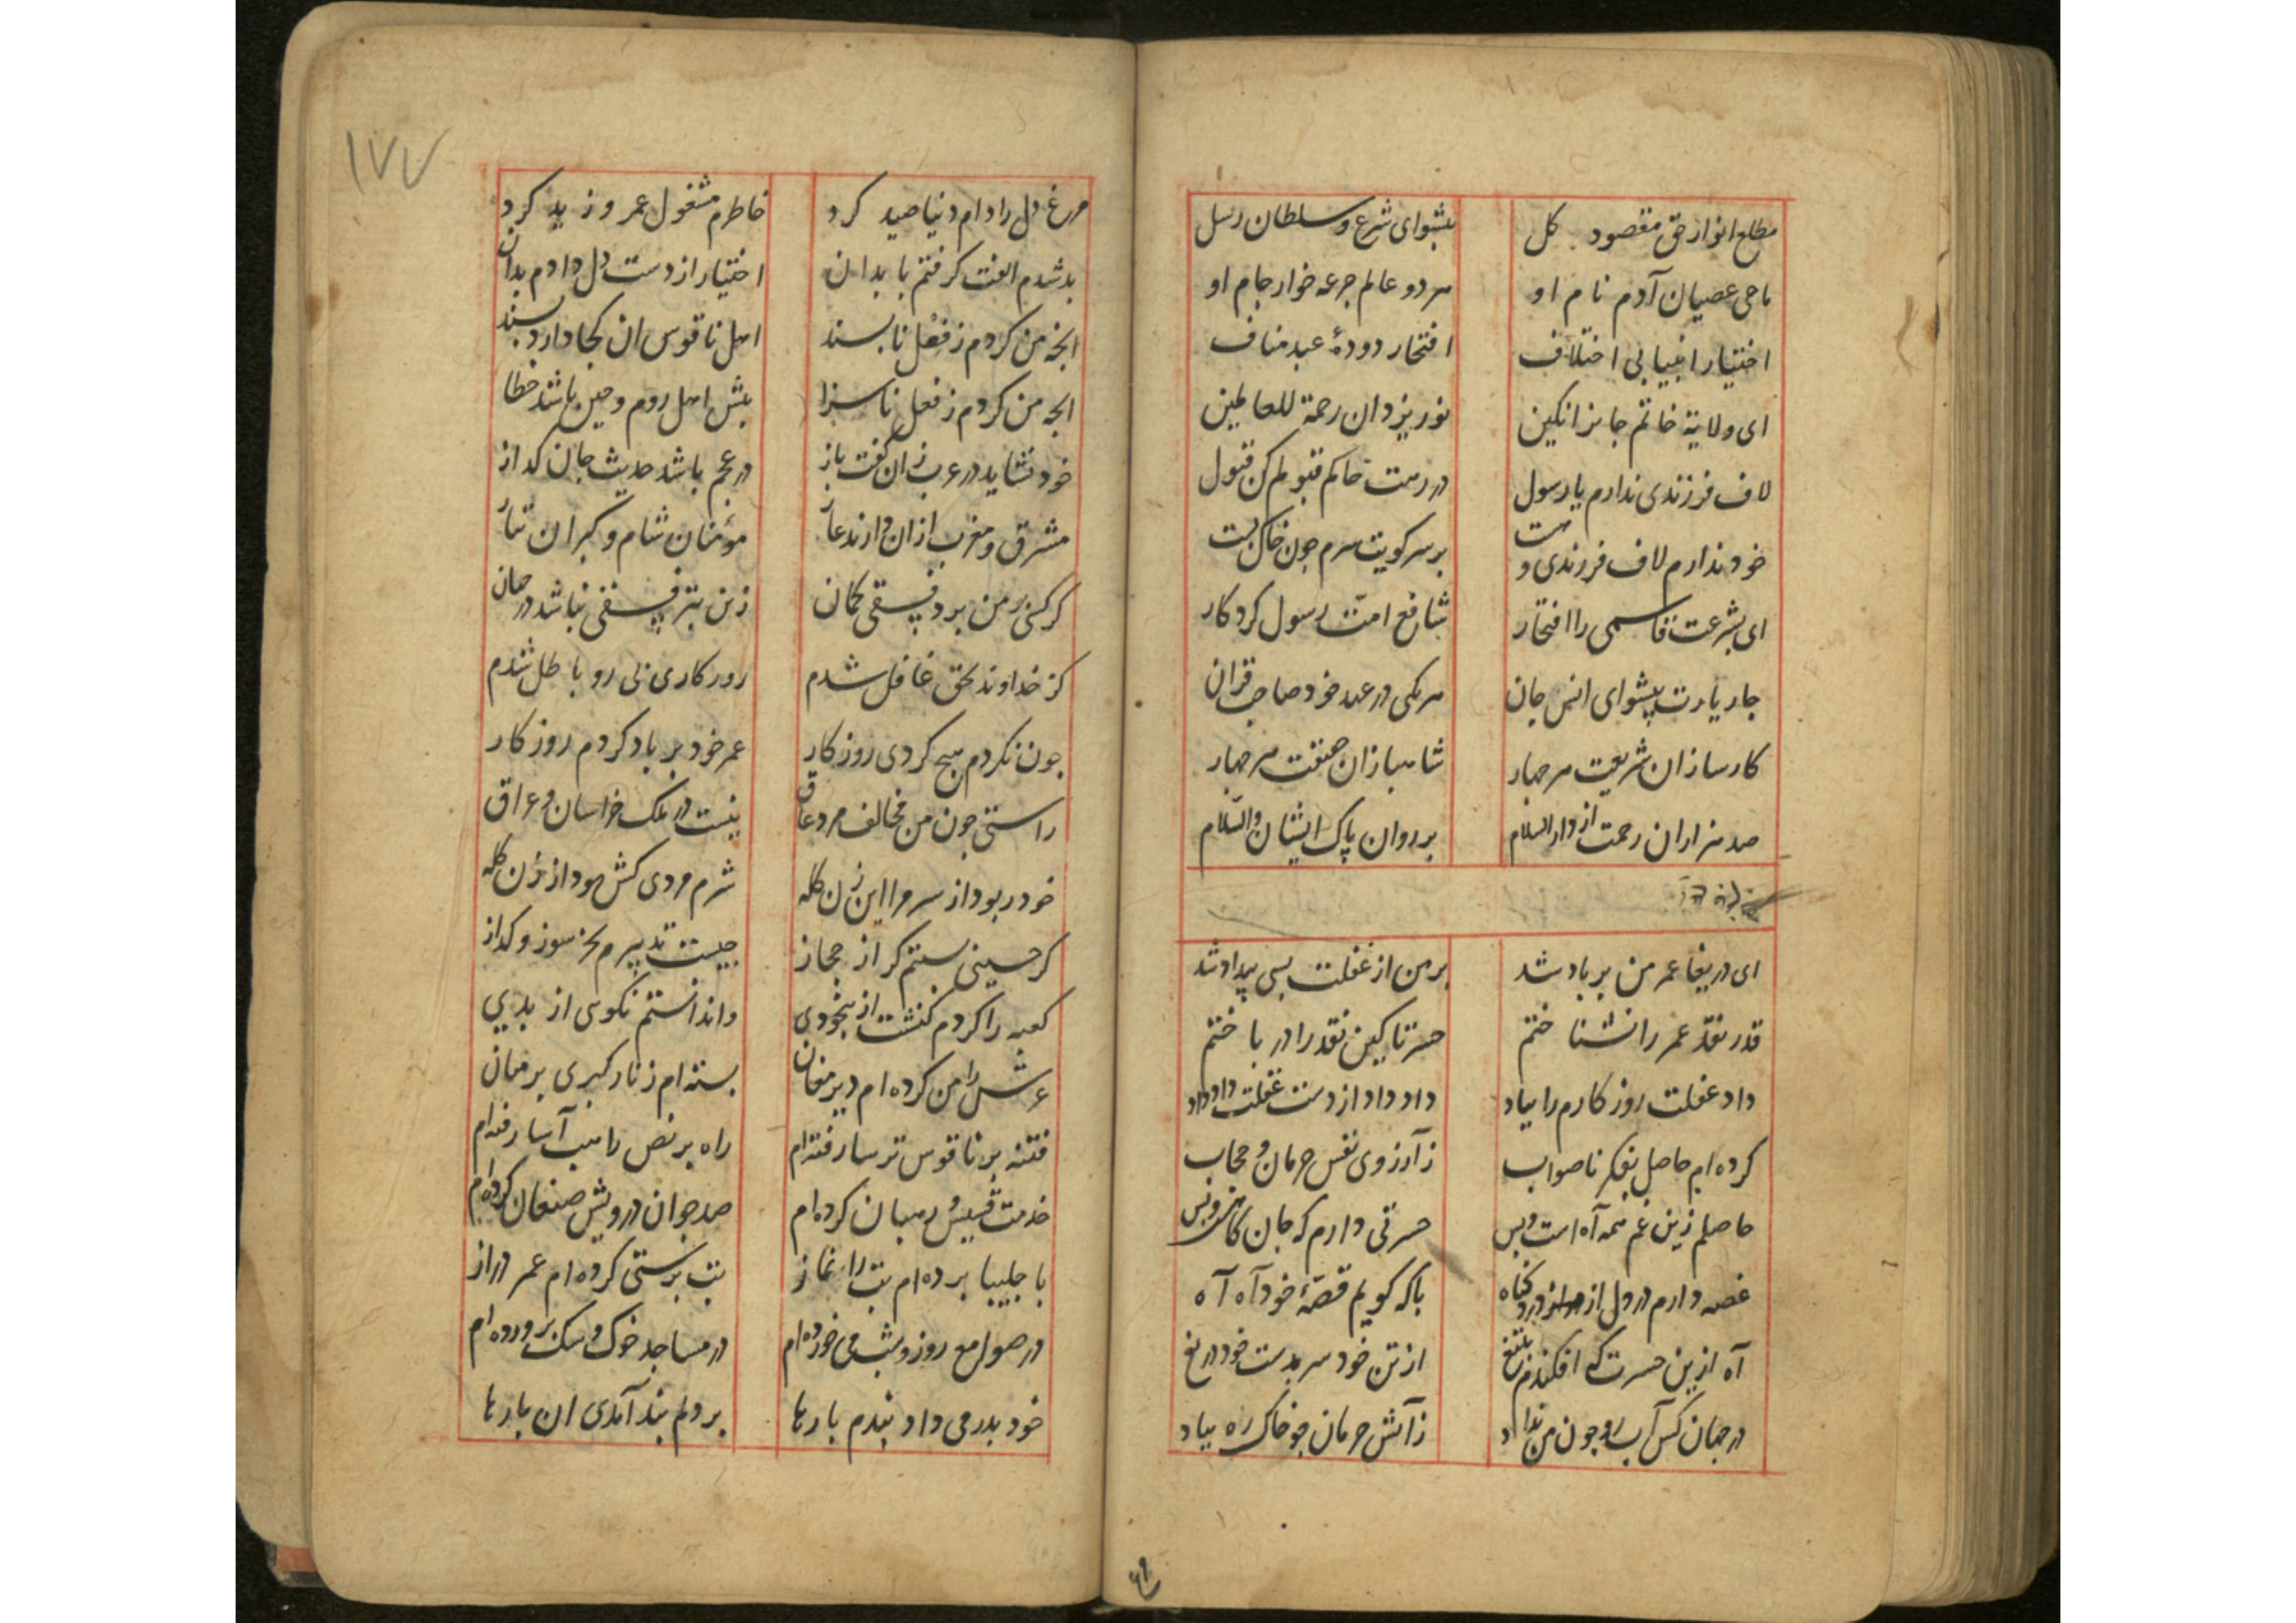 مطلع انوار حق مقصود کل
پیشوای شرع و سلطان رسل
ماحی عصیان آدم نام او
هر دو عالم جرعه خوار جام او
اختیار انبیا بی اختلاف
افتخار دودهٔ عبد مناف
ای ولایة خاتم جانرا نکین
نور یزدان رحمة للعالمین
لاف فرزندی ندارم یا رسول
در رهت خاکم قبولم کن قبول
خود ندارم لاف فرزندی و
بر سر کویت سرم چون خاک بست
ای بشرعت قاسمی را افتخار
شافع امت رسول کردکار
چار یارت پیشوای انس جان
هر یکی در عهد خود صاحب قران
کارسازان شریعت هر چهار
شاهبازان حقیقت هر چهار
صد هزاران رحمت از دار السلام
بر روان پاک ایشان والسلام
ای دریغا عمر من بر باد شد
بر من از غفلت بسی بیداد شد
قدر نقد عمر را نشناختم
حسرتا کین نقد را در باختم
داد غفلت روزکارم را بباد
داد داد از دست غفلت داد داد
کرده ام حاصل بفکر ناصواب
ز آرزوی نفس حرمان و حجاب
حاصلم زین غم همه آه است و بس
حسرتی دارم که جان کاهی و بس
غصه دارم در دل از درد کناه
با که کویم قصهٔ خود آه آه
آه ازین حسرت که افکندم بتیغ
از تن خود سر بدست خود دریغ
در جهان کس آب رو چون من نداد
ز آتش حرمان چو خاک ره بباد
۱۷۷
مرغ دل را دام دنیا صید کرد
خاطرم مشغول عمر و زید کرد
بد شدم الفت کرفتم با بدان
اختیار از دست دل دادم بدان
انچه من کردم ز فعل ناپسند
اهل ناقوس ان کجا دارد پسند
انچه من کردم ز فعل ناسزا
پیش اهل روم و چین باشد خطا
خود نشاید در عرب زان کفت باز
در عجم باشد حدیث جان کداز
مشرق و مغرب ازان دارند عار
مؤمنان شام و کبران تتار
کر کنی بر من برد فسقی کمان
زین بتر فسقی نباشد در جهان
کز خداوند بحق غافل شدم
روز کاری بی رو باطل شدم
چون نکردم هیچ کردی روزکار
عمر خود بر باد کردم روز کار
راستی چون من مخالف مرد عاق
نیست در ملک خراسان و عراق
خود ربود از سر مرا این زن کله
شرم مردی کش بود از زن کله
کر حسینی نیستم کر از حجاز
چیست تدبیرم بجز سوز و کداز
کعبه را کردم کنشت از بیخودی
واندانستم نکوی از بدیی
عرش را من کرده ام دیر مغان
بسته ام زنار کبری بر میان
فتنه بر ناقوس ترسا رفته ام
راه بر نص راهب آسا رفته ام
خدمت قسیس و رهبان کرده ام
صد چو ان درویش صنعان کرده ام
با چلیپا برده ام بت را نماز
بت پرستی کرده ام عمر دراز
در صوامع روز و شب می خورده ام
در مساجد خوک و سک پرورده ام
خود پدر می داد پندم بارها
بر دلم بند آمدی ان بارها